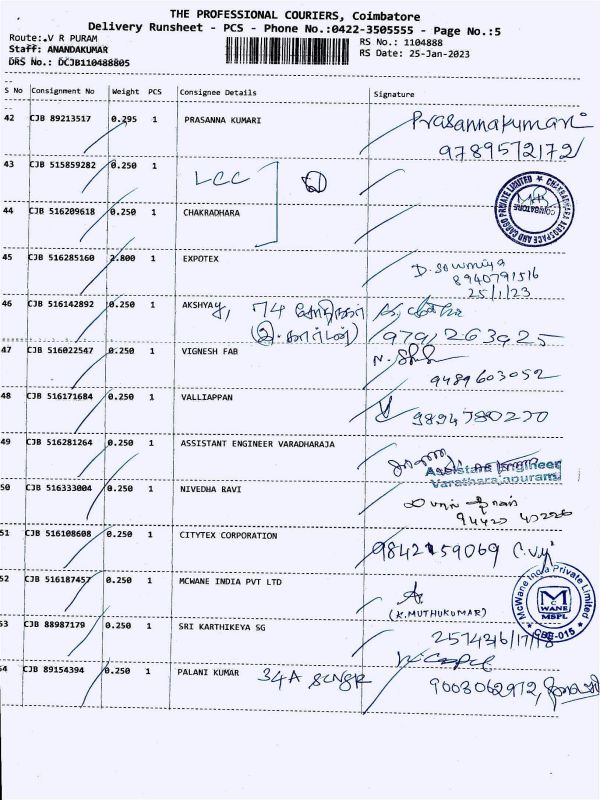 THE PROFESSIONAL COURIERS, Coimbatore
Delivery Runsheet - PCS - Phone No.:0422-3505555 - Page No.:5
Route: V R PURAM
RS No.: 1104888
Staff: ANANDAKUMAR
RS Date: 25-Jan-2023
DRS No.: DCJB110488805
S No Consignment No Weight PCS Consignee Details Signature
42 CJB 89213517 0.295 1 PRASANNA KUMARI Prasannakumari
9789572172
43 CJB 515859282 0.250 1 LCC
44 CJB 516209618 0.250 1 CHAKRADHARA
CHAKRADHARA AEROSPACE AND CARGO PRIVATE LIMITED
COIMBATORE
45 CJB 516285160 2.800 1 EXPOTEX D. Sowmiya
8940791516
25/1/23
46 CJB 516142892 0.250 1 AKSHYA 74
9791263925
47 CJB 516022547 0.250 1 VIGNESH FAB
9489603052
48 CJB 516171684 0.250 1 VALLIAPPAN
9894780270
49 CJB 516281264 0.250 1 ASSISTANT ENGINEER VARADHARAJA
Assistant Engineer
Varatharajapuram
50 CJB 516333004 0.250 1 NIVEDHA RAVI
51 CJB 516108608 0.250 1 CITYTEX CORPORATION
52 CJB 516187457 0.250 1 MCWANE INDIA PVT LTD
(K.MUTHUKUMAR)
McWane India Private Limited
MC WANE
MSPL
CBE-015
53 CJB 88987179 0.250 1 SRI KARTHIKEYA SG 2574316/17/18
54 CJB 89154394 0.250 1 PALANI KUMAR 34A
9003062972,